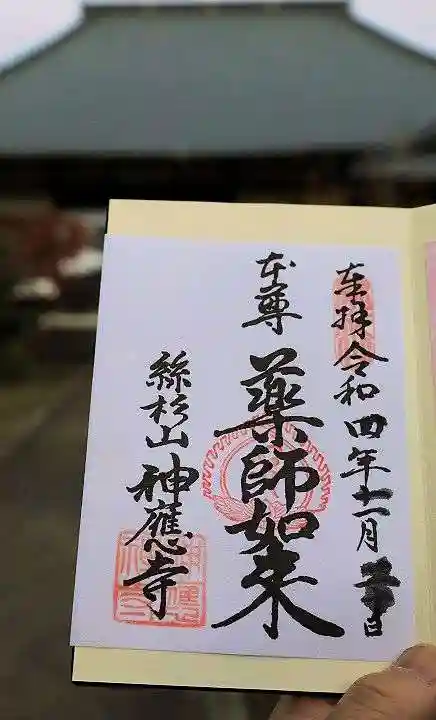 奉拝 令和四年十一月 日
本尊 薬師如来
絲杉山 神應寺